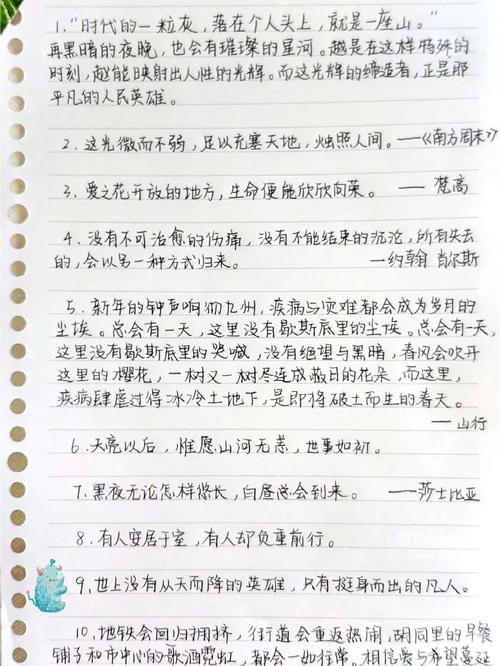 1.“时代的一粒灰，落在个人头上，就是一座山。”
再黑暗的夜晚，也会有璀璨的星河。越是在这样特殊的
时刻，越能映射出人性的光辉。而这光辉的缔造者，正是那
平凡的人民英雄。
2．这光微而不弱，足以充塞天地，烛照人间。——《南方周末》
3．爱之花开放的地方，生命便能欣欣向荣。——梵高
4．没有不可治愈的伤痛，没有不能结束的沉沦，所有失去
的，会以另一种方式归来。—约翰 肖尔斯
5．新年的钟声响彻九州，疾病与灾难都会成为岁月的
尘埃。总会有一天，这里没有歇斯底里的尘埃。总会有一天，
这里没有歇斯底里的哭喊，没有绝望与黑暗，春风会吹开
这里的樱花，一树又一树尽连成蔽日的花朵，而这里，
疾病肆虐过得冰冷土地下，是即将破土而生的春天。
—山行
6．天亮以后，惟愿山河无恙，世事如初。
7．黑夜无论怎样悠长，白昼总会到来。——莎士比亚
8．有人安居于室，有人却负重前行。
9．世上没有从天而降的英雄，只有挺身而出的凡人。
10．地铁会回归拥挤，街道会重返热闹，胡同里的早餐
铺子和市中心的歌酒霓虹，都会一如往常。相信爱与希望蔓延